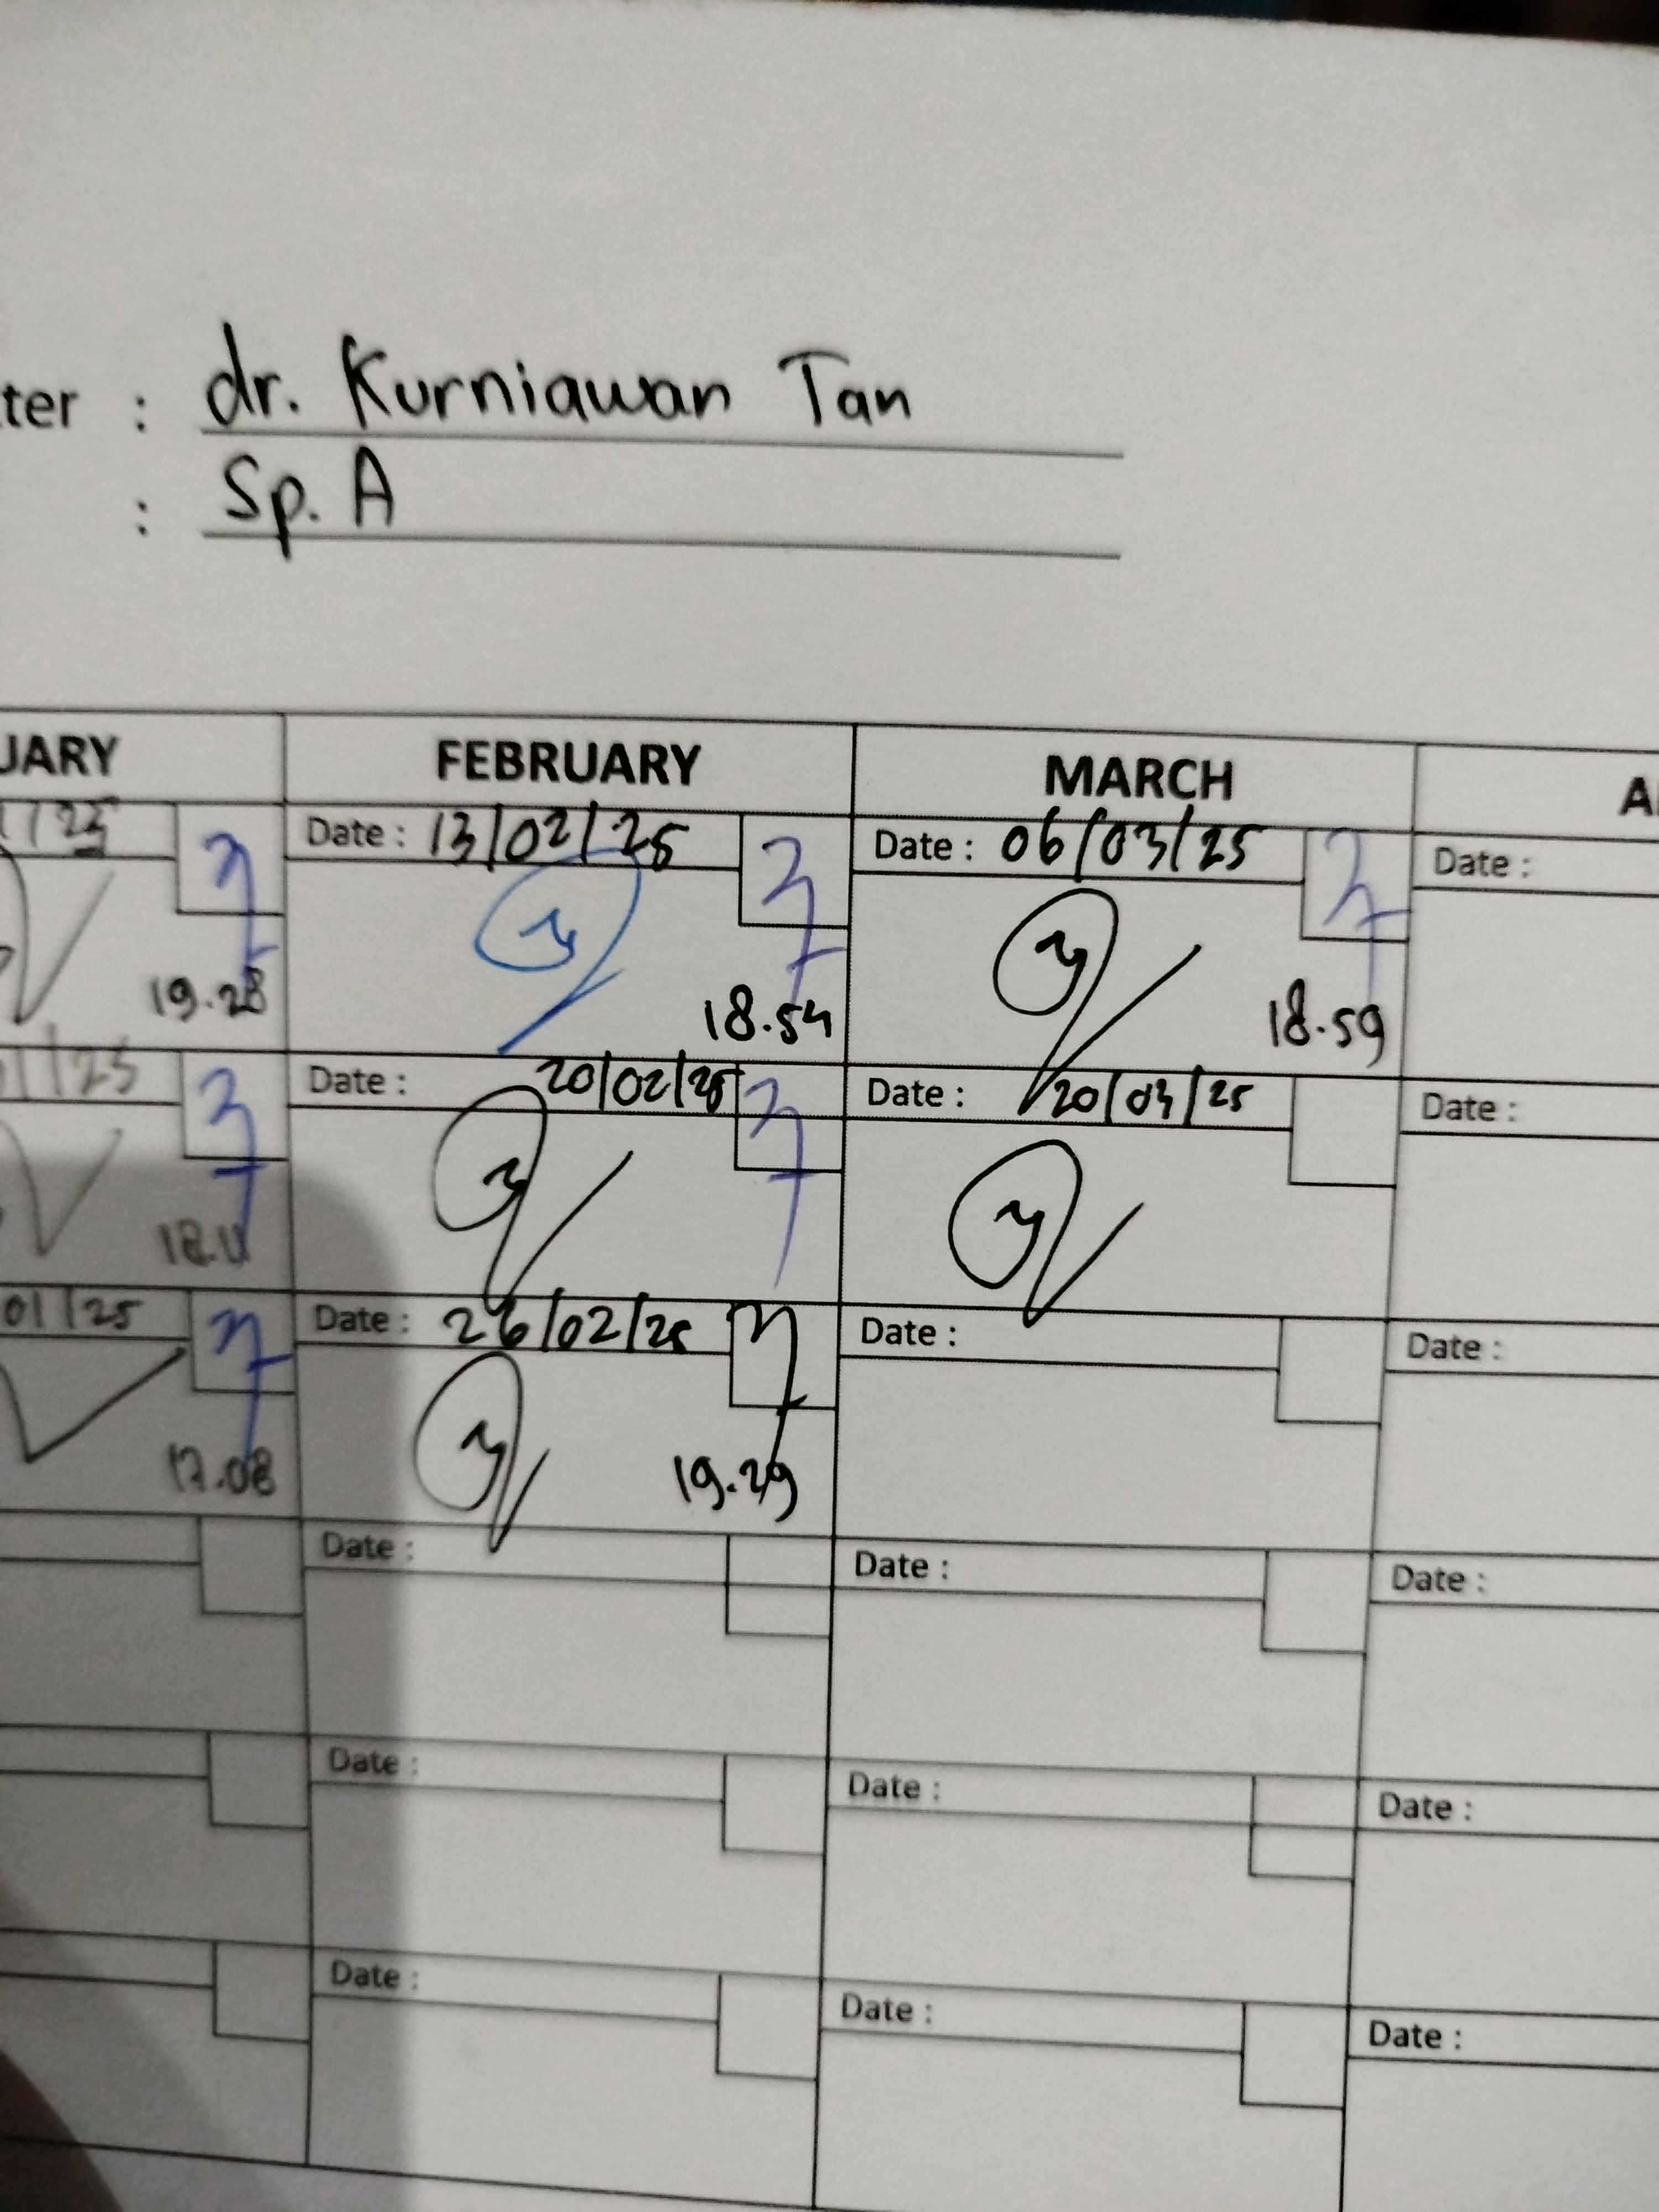 ter : dr. Kurniawan Tan
: Sp. A
UARY FEBRUARY MARCH A
/25 Date : 13/02/25 Date : 06/03/25 Date :
19.28 18.54 18.59
/25 Date : 20/02/25 Date : 20/03/25 Date :
18.11
01/25 Date : 26/02/25 Date : Date :
17.08 19.29
Date : Date : Date :
Date : Date : Date :
Date : Date : Date :